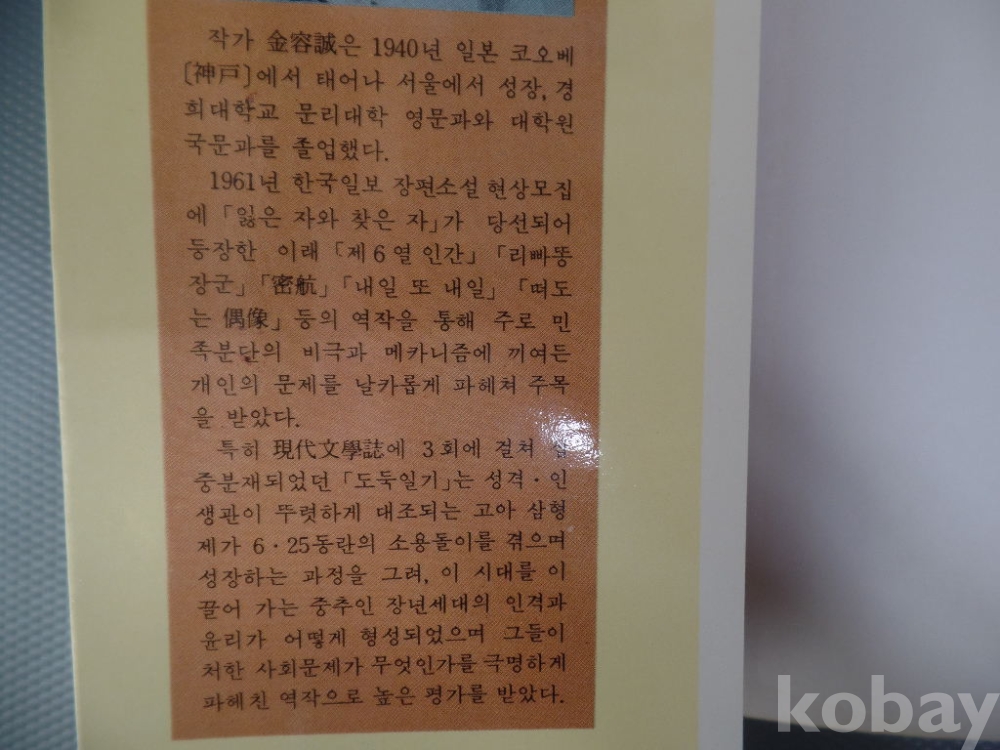 작가 金容誠은 1940년 일본 코오베
〔神戸〕에서 태어나 서울에서 성장, 경
희대학교 문리대학 영문과와 대학원
국문과를 졸업했다.
1961년 한국일보 장편소설 현상모집
에 「잃은 자와 찾은 자」가 당선되어
등장한 이래 「제 6 열 인간」 「리빠똥
장군」 「密航」 「내일 또 내일」 「떠도
는 偶像」 등의 역작을 통해 주로 민
족분단의 비극과 메카니즘에 끼여든
개인의 문제를 날카롭게 파헤쳐 주목
을 받았다.
특히 現代文學誌에 3 회에 걸쳐
중분재되었던 「도둑일기」는 성격・인
생관이 뚜렷하게 대조되는 고아 삼형
제가 6・25동란의 소용돌이를 겪으며
성장하는 과정을 그려, 이 시대를 이
끌어 가는 중추인 장년세대의 인격과
윤리가 어떻게 형성되었으며 그들이
처한 사회문제가 무엇인가를 극명하게
파헤친 역작으로 높은 평가를 받았다.
kobay